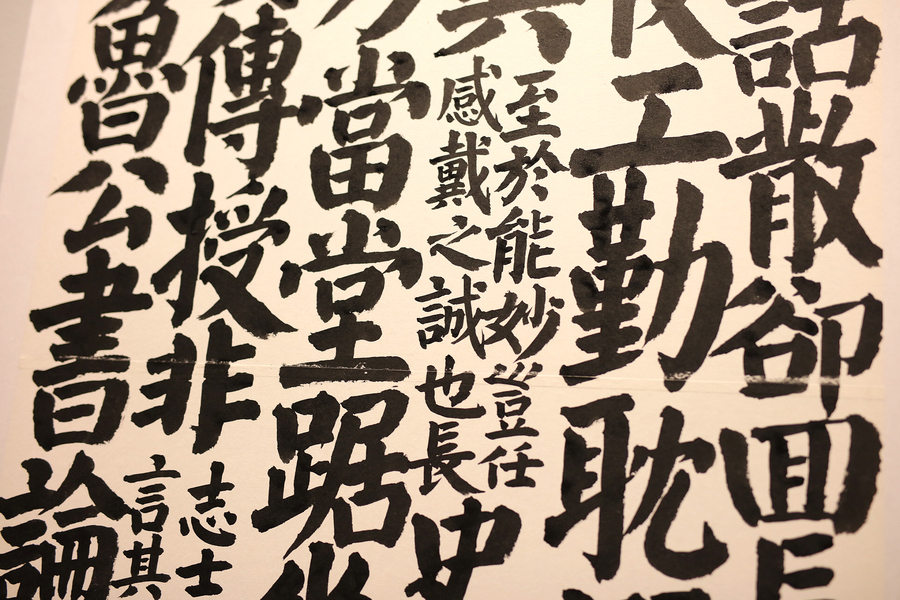 話散卻回
工勤耽
至於能妙豈任
感戴之誠也長
史
當堂踞坐
傳授非
志士
言其
魯公書論